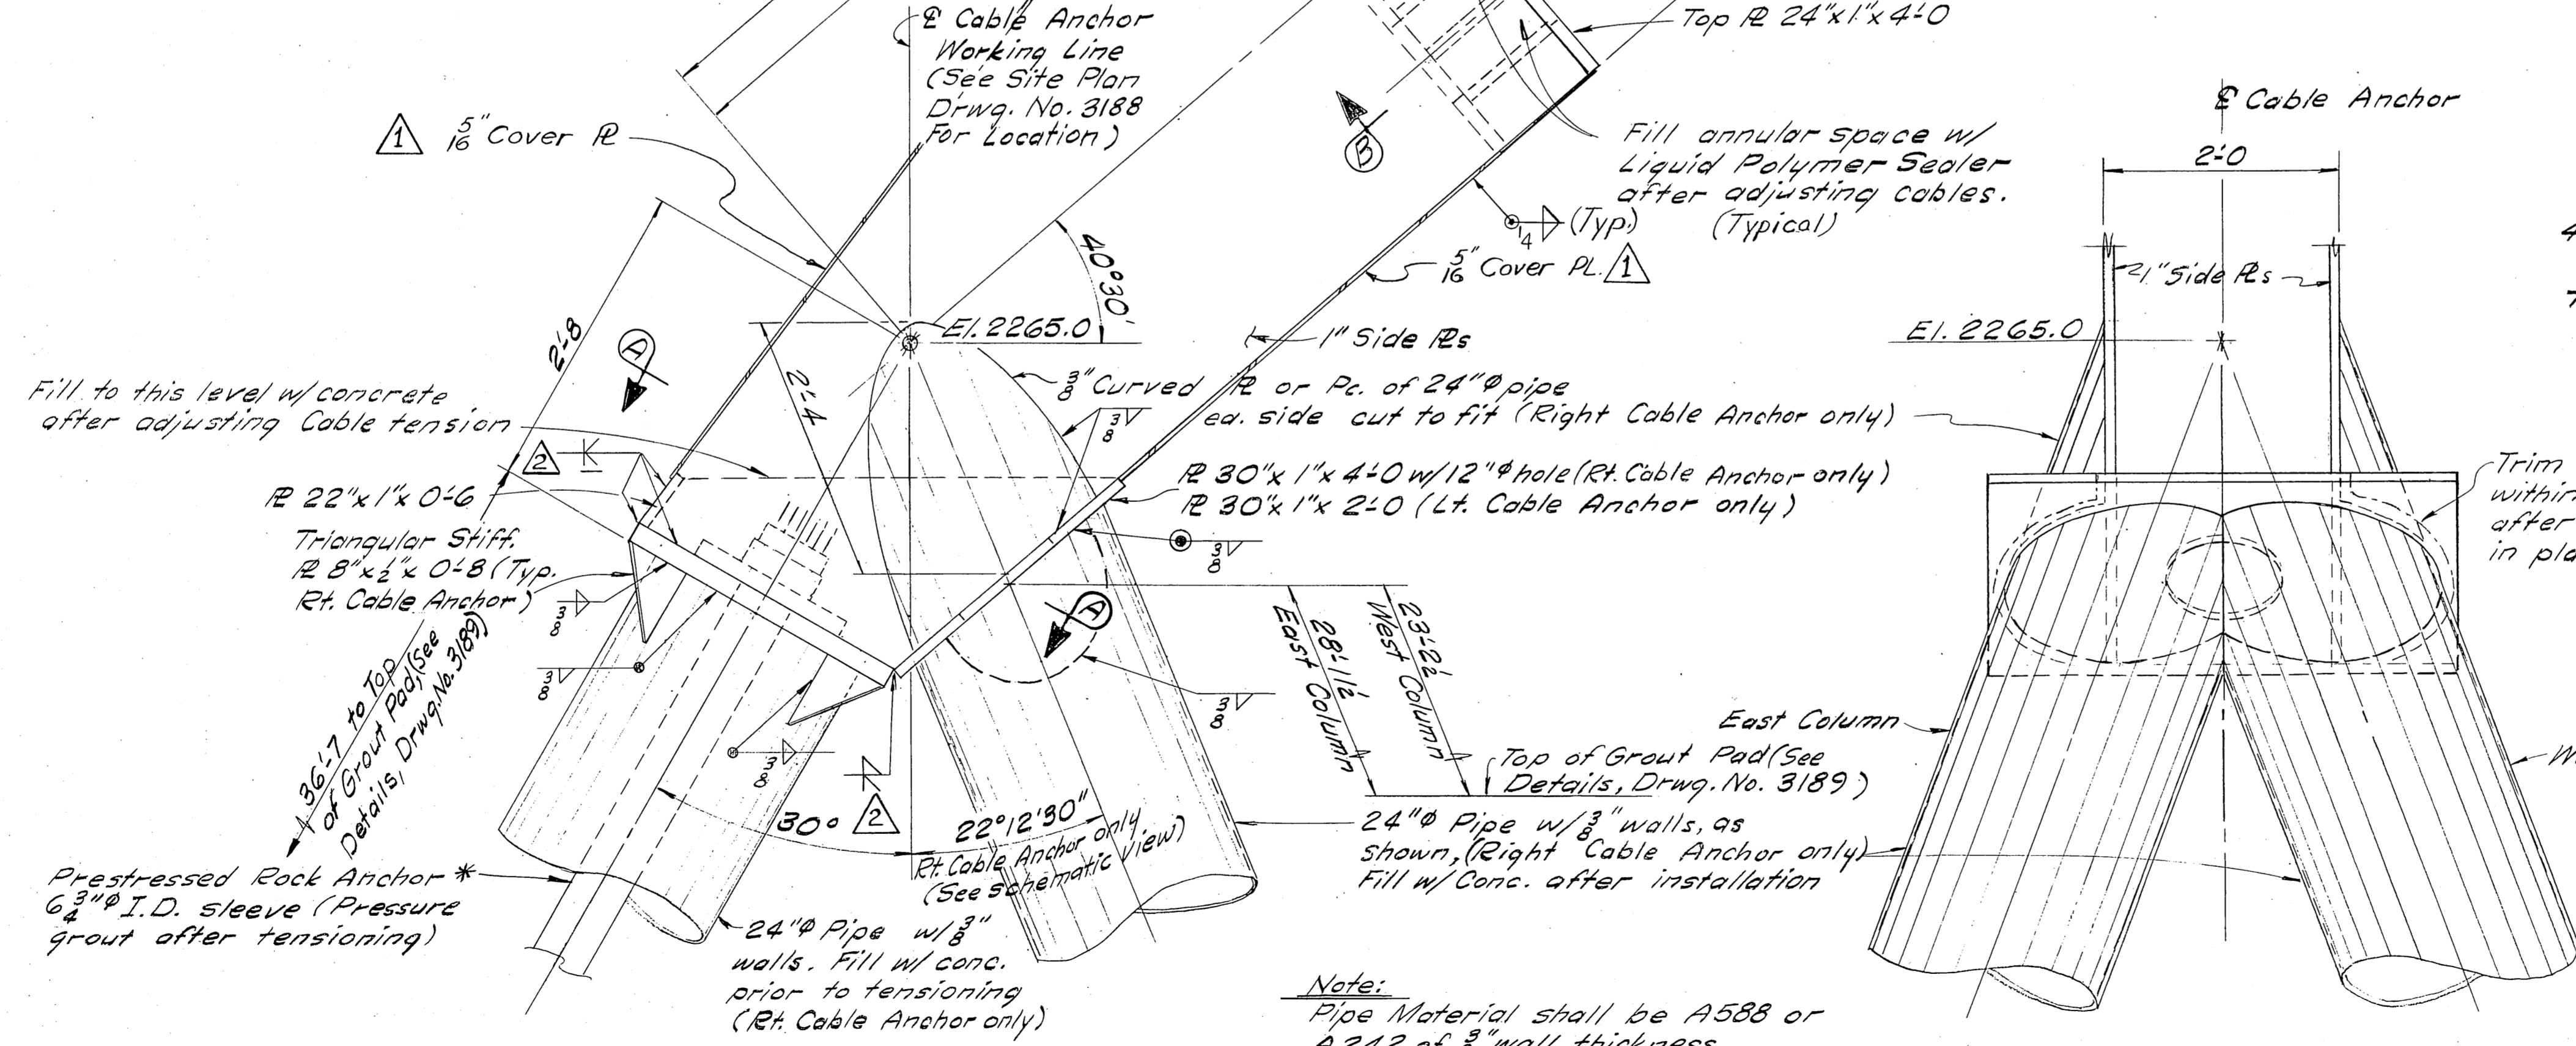 ℄ Cable Anchor
Working Line
(See Site Plan
Drwg. No. 3188
For Location)
Top ℄ 24"x1"x4'-0
℄ Cable Anchor
2'-0
1 5/16" Cover ℄
B
Fill annular space w/
Liquid Polymer Sealer
after adjusting cables.
(Typical)
1/4 (Typ.)
5/16" Cover PL. 1
40°30'
1" Side ℄s
El. 2265.0
El. 2265.0
1" Side ℄s
2'-8
A
2'-4
Fill to this level w/concrete
after adjusting Cable tension
3/8" Curved ℄ or Pc. of 24"Φ pipe
ea. side cut to fit (Right Cable Anchor only)
3/8
2
℄ 22"x1"x0'-6
℄ 30"x1"x4'-0 w/12"Φ hole (Rt. Cable Anchor only)
℄ 30"x1"x2'-0 (Lt. Cable Anchor only)
Trim
within
after
in pla
Triangular Stiff.
℄ 8"x1/2"x0'-8 (Typ.
Rt. Cable Anchor)
3/8
3/8
3/8
A
3/8
3/8
36'-7 to Top
of Grout Pad, (See
Details, Drwg. No. 3189)
28'-11 1/2
East Column
23'-2 1/2
West Column
East Column
Top of Grout Pad (See
Details, Drwg. No. 3189)
30°
2
22°12'30"
Rt. Cable Anchor only
(See schematic view)
24"Φ Pipe w/3/8" walls, as
shown, (Right Cable Anchor only)
Fill w/ Conc. after installation
Prestressed Rock Anchor *
6 3/4"Φ I.D. sleeve (Pressure
grout after tensioning)
24"Φ Pipe w/3/8"
walls. Fill w/ conc.
prior to tensioning
(Rt. Cable Anchor only)
Note:
Pipe Material shall be A588 or
A242 of 3/8" wall thickness